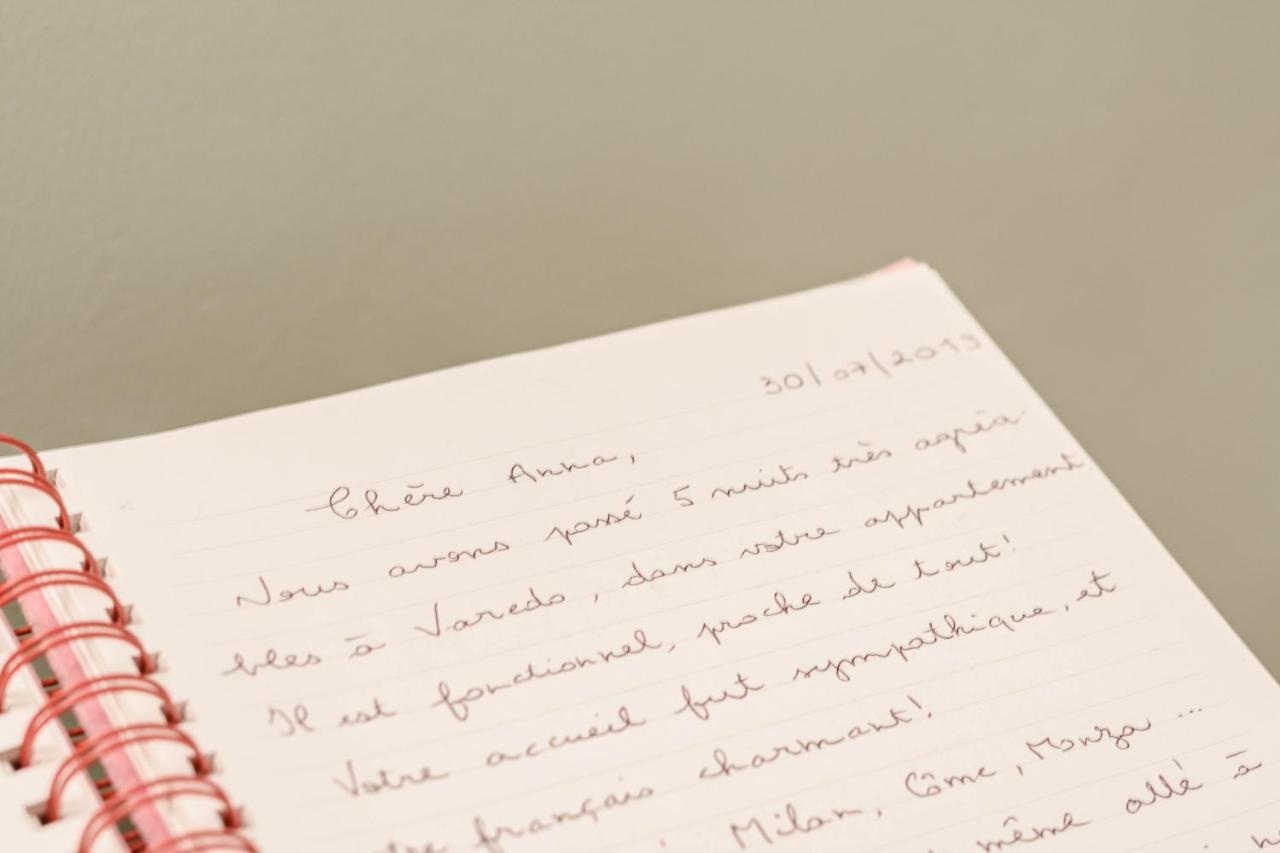 30/07/2013
Chère Anna,
Nous avons passé 5 nuits très agréa-
bles à Varedo, dans votre appartement
Il est fonctionnel, proche de tout!
Votre accueil fut sympathique, et
français charmant!
Milan, Côme, Monza...
même allé à